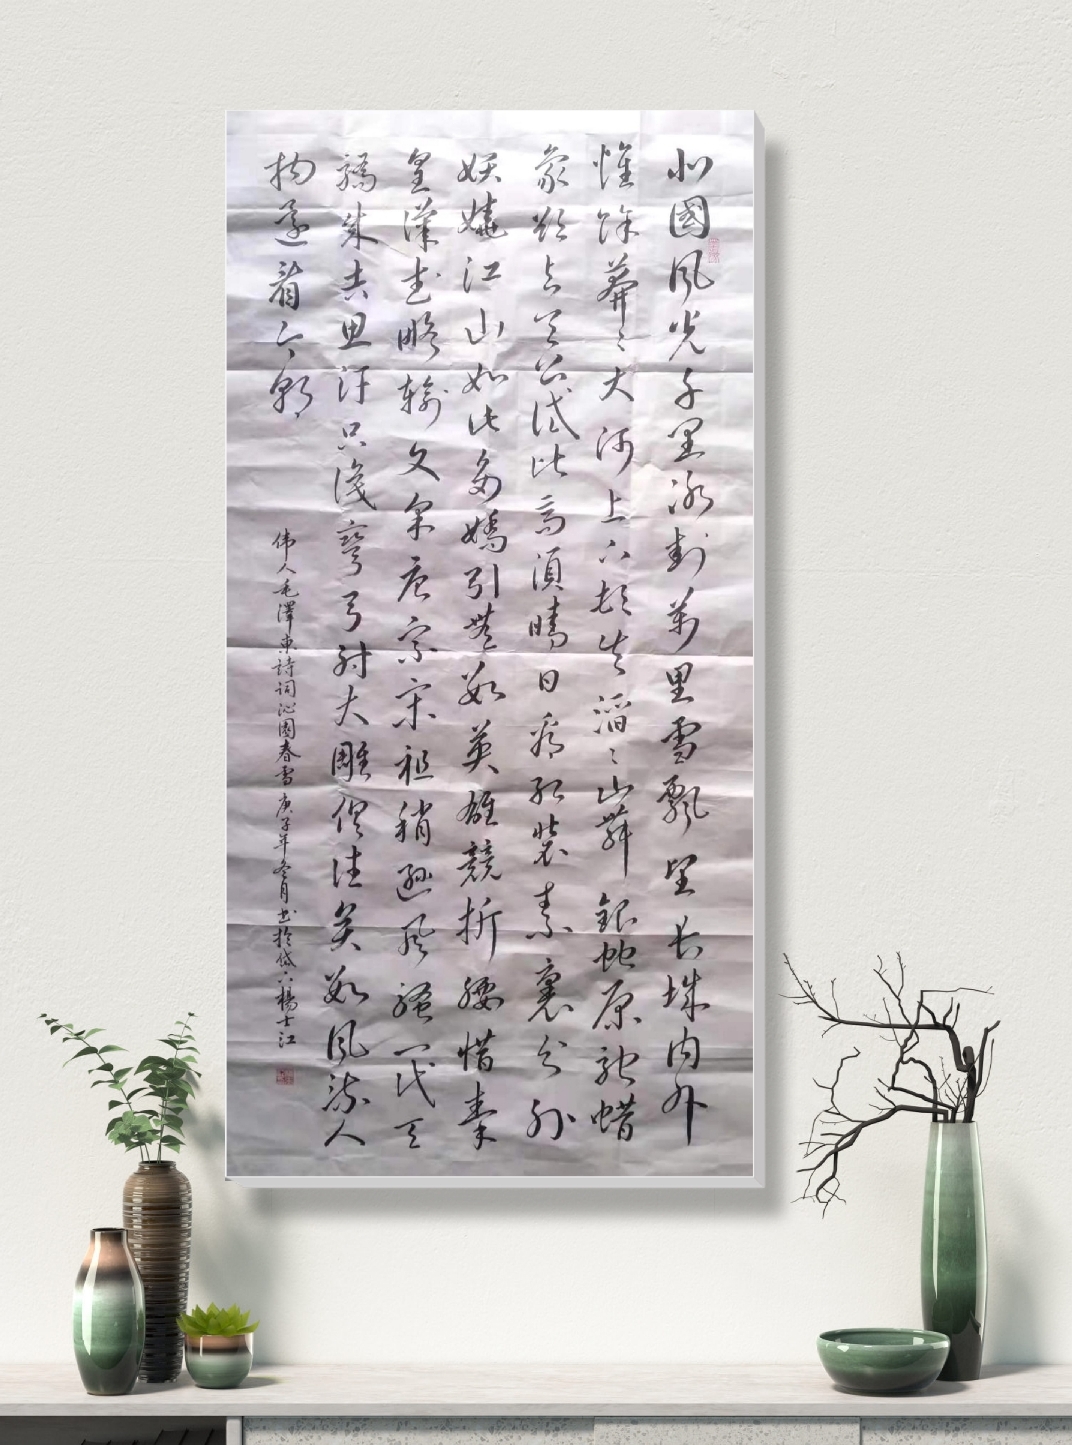 北國風光千里冰封萬里雪飄望長城内外
惟餘莽〻大河上下頓失滔〻山舞銀蛇原馳蜡
象欲与天公試比高須晴日看紅裝素裹分外
妖嬈江山如此多嬌引無數英雄競折腰惜秦
皇漢武略输文采唐宗宋祖稍遜風騷一代天
驕成吉思汗只識彎弓射大雕俱往矣數風流人
物還看今朝
伟人毛澤東詩詞沁園春雪庚子年冬月书於岱下楊士江